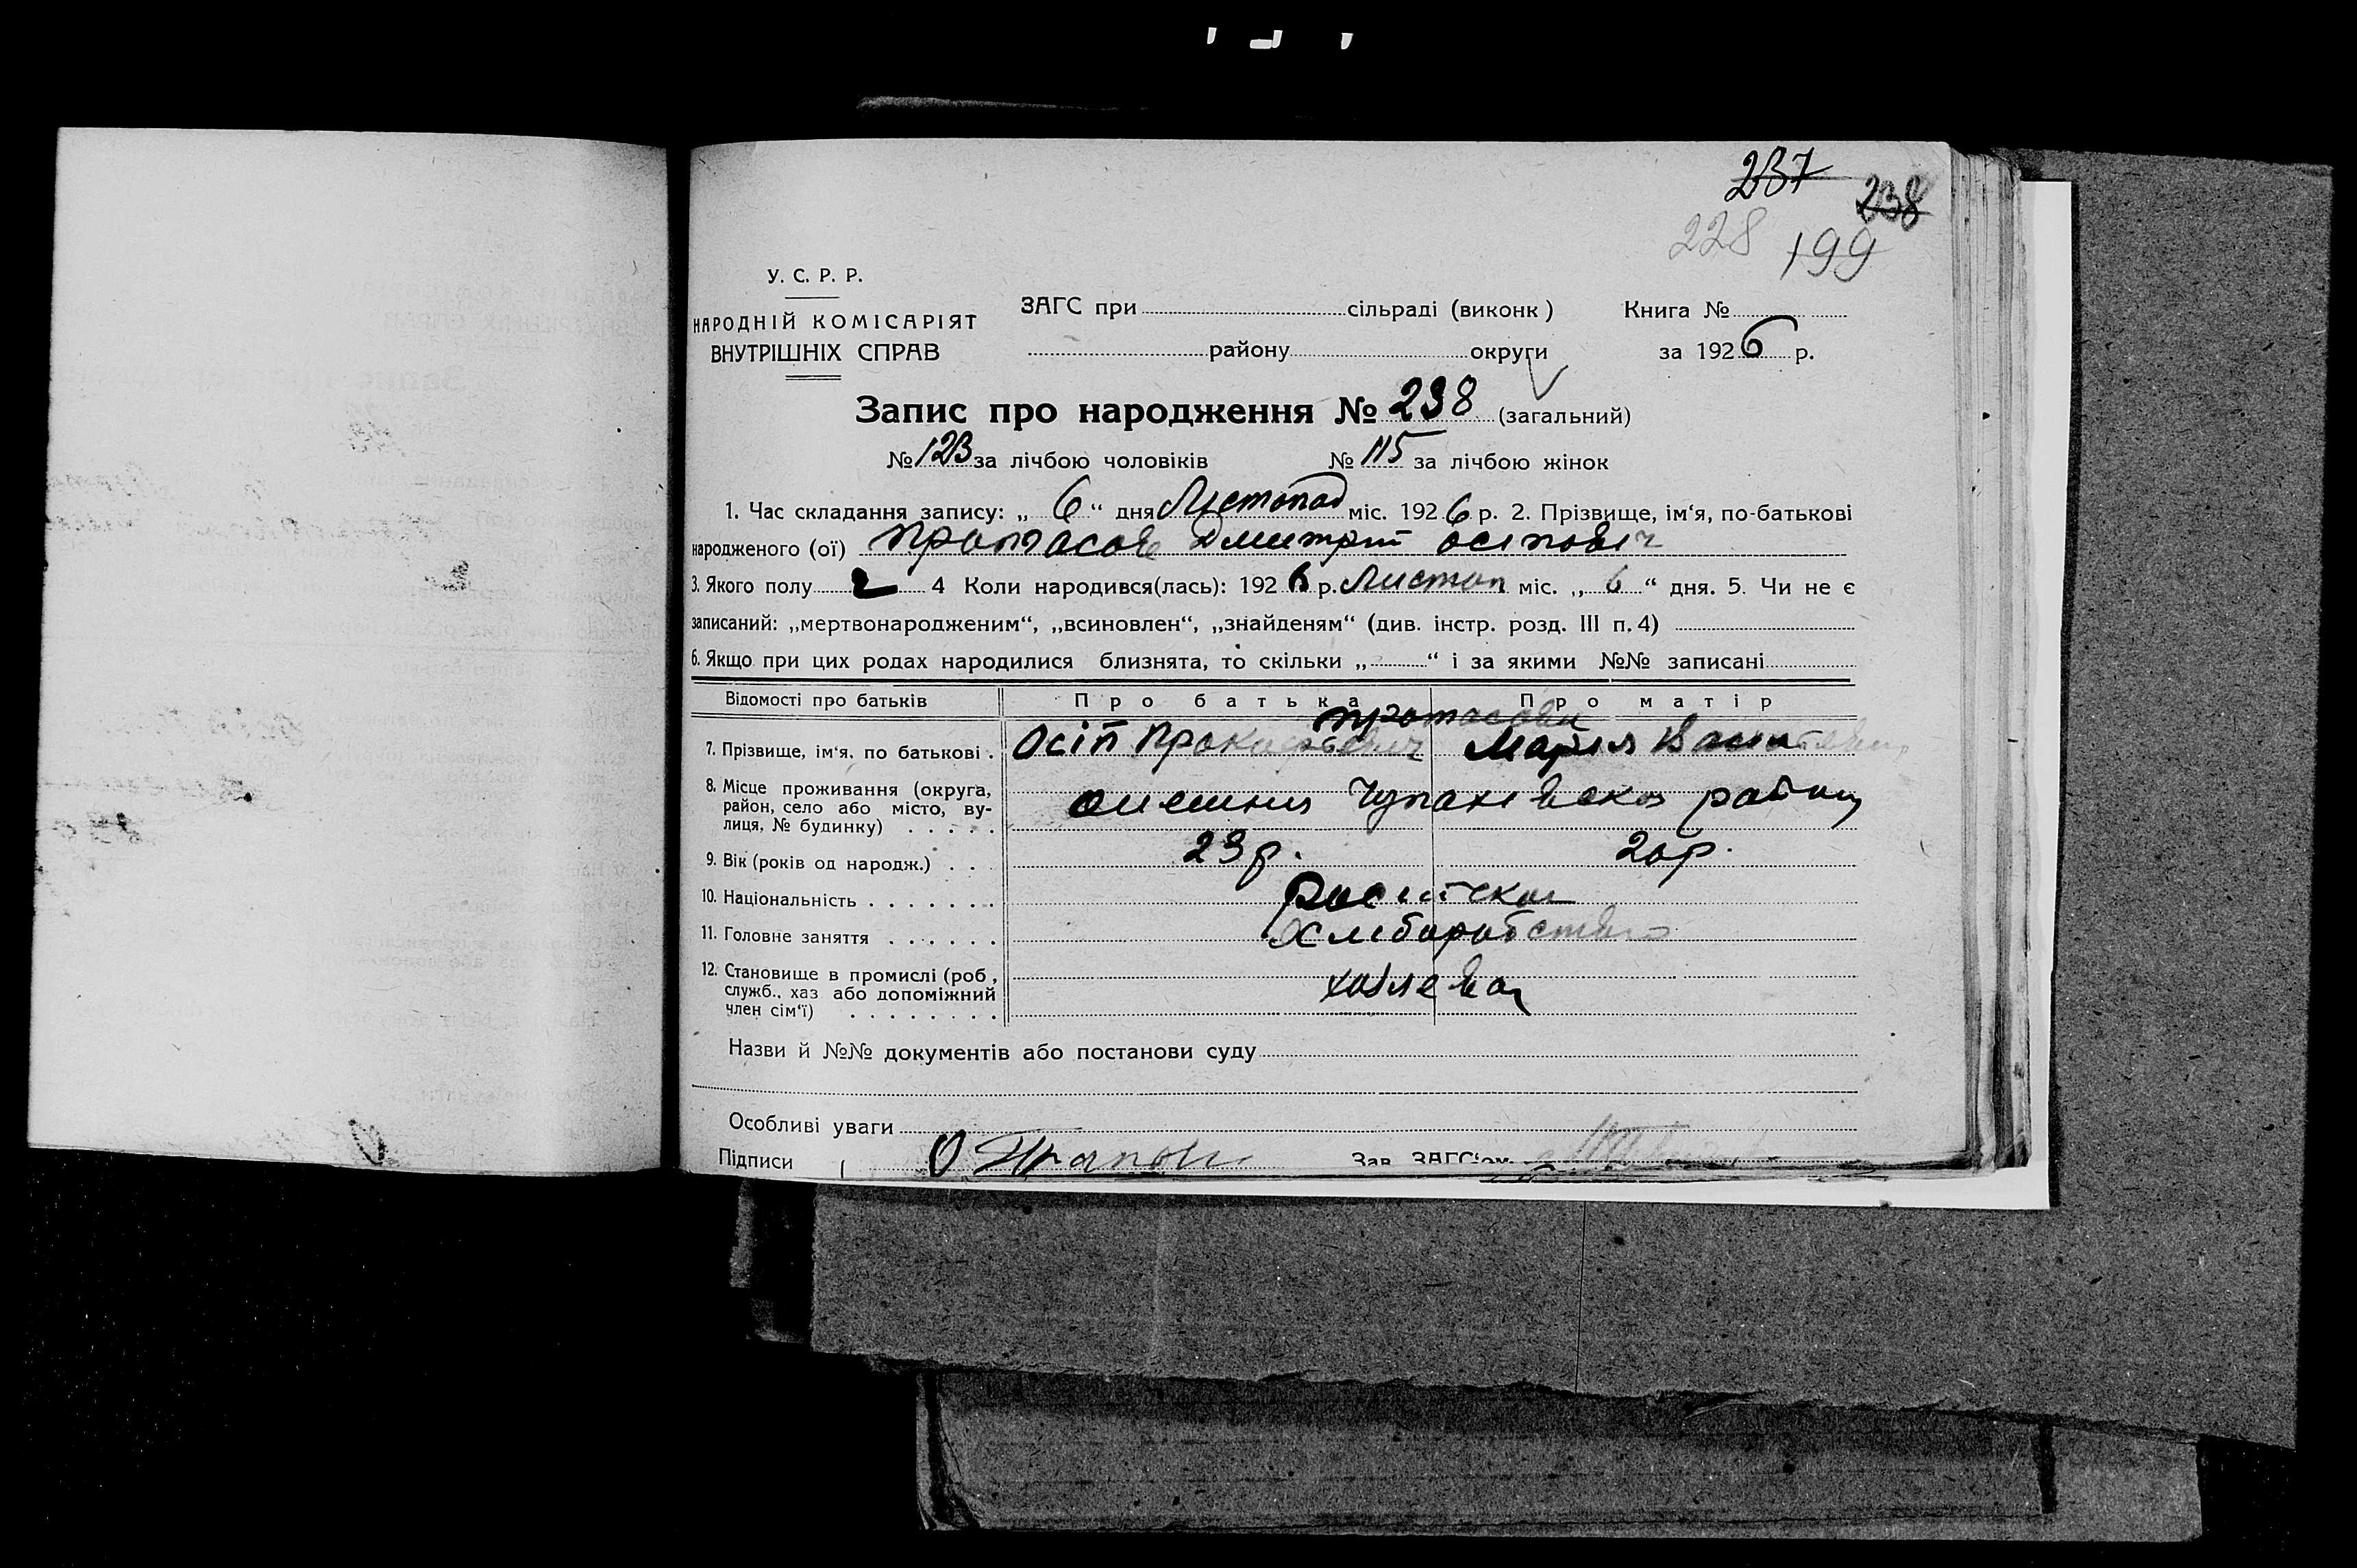 237 238
228 199
У. С. Р. Р.
НАРОДНІЙ КОМІСАРІЯТ
ВНУТРІШНІХ СПРАВ
ЗАГС при сільраді (виконк)
району округи
Книга №
за 1926 р.
Запис про народження № 238 (загальний)
№ 123 за лічбою чоловіків № 115 за лічбою жінок
1. Час складання запису: „ 6 “ дня Листопад міс. 1926 р. 2. Прізвище, ім‘я, по-батькові
народженого (ої) Протасов Дмитрий осіповіч
3. Якого полу 2 4 Коли народився(лась): 1926 р. Листоп міс. „ 6 “ дня. 5. Чи не є
записаний: „мертвонародженим“, „всиновлен“, „знайденям“ (див. інстр. розд. III п. 4)
6. Якщо при цих родах народилися близнята, то скільки „ “ і за якими №№ записані
Відомості про батьків Про батька Про матір
протасови
7. Прізвище, ім‘я, по батькові . Осіп Мария
8. Місце проживання (округа,
район, село або місто, ву-
лиця, № будинку) . . . . .
району
9. Вік (років од народж.) . . . 23 р. 20 р.
10. Національність . . . . . . .
11. Головне заняття . . . . . . Хлиборобство
12. Становище в промислі (роб,
служб., хаз або допоміжний
член сім‘ї) . . . . . . . .
Назви й №№ документів або постанови суду
Особливі уваги
Підписи Зав. ЗАГС‘ом